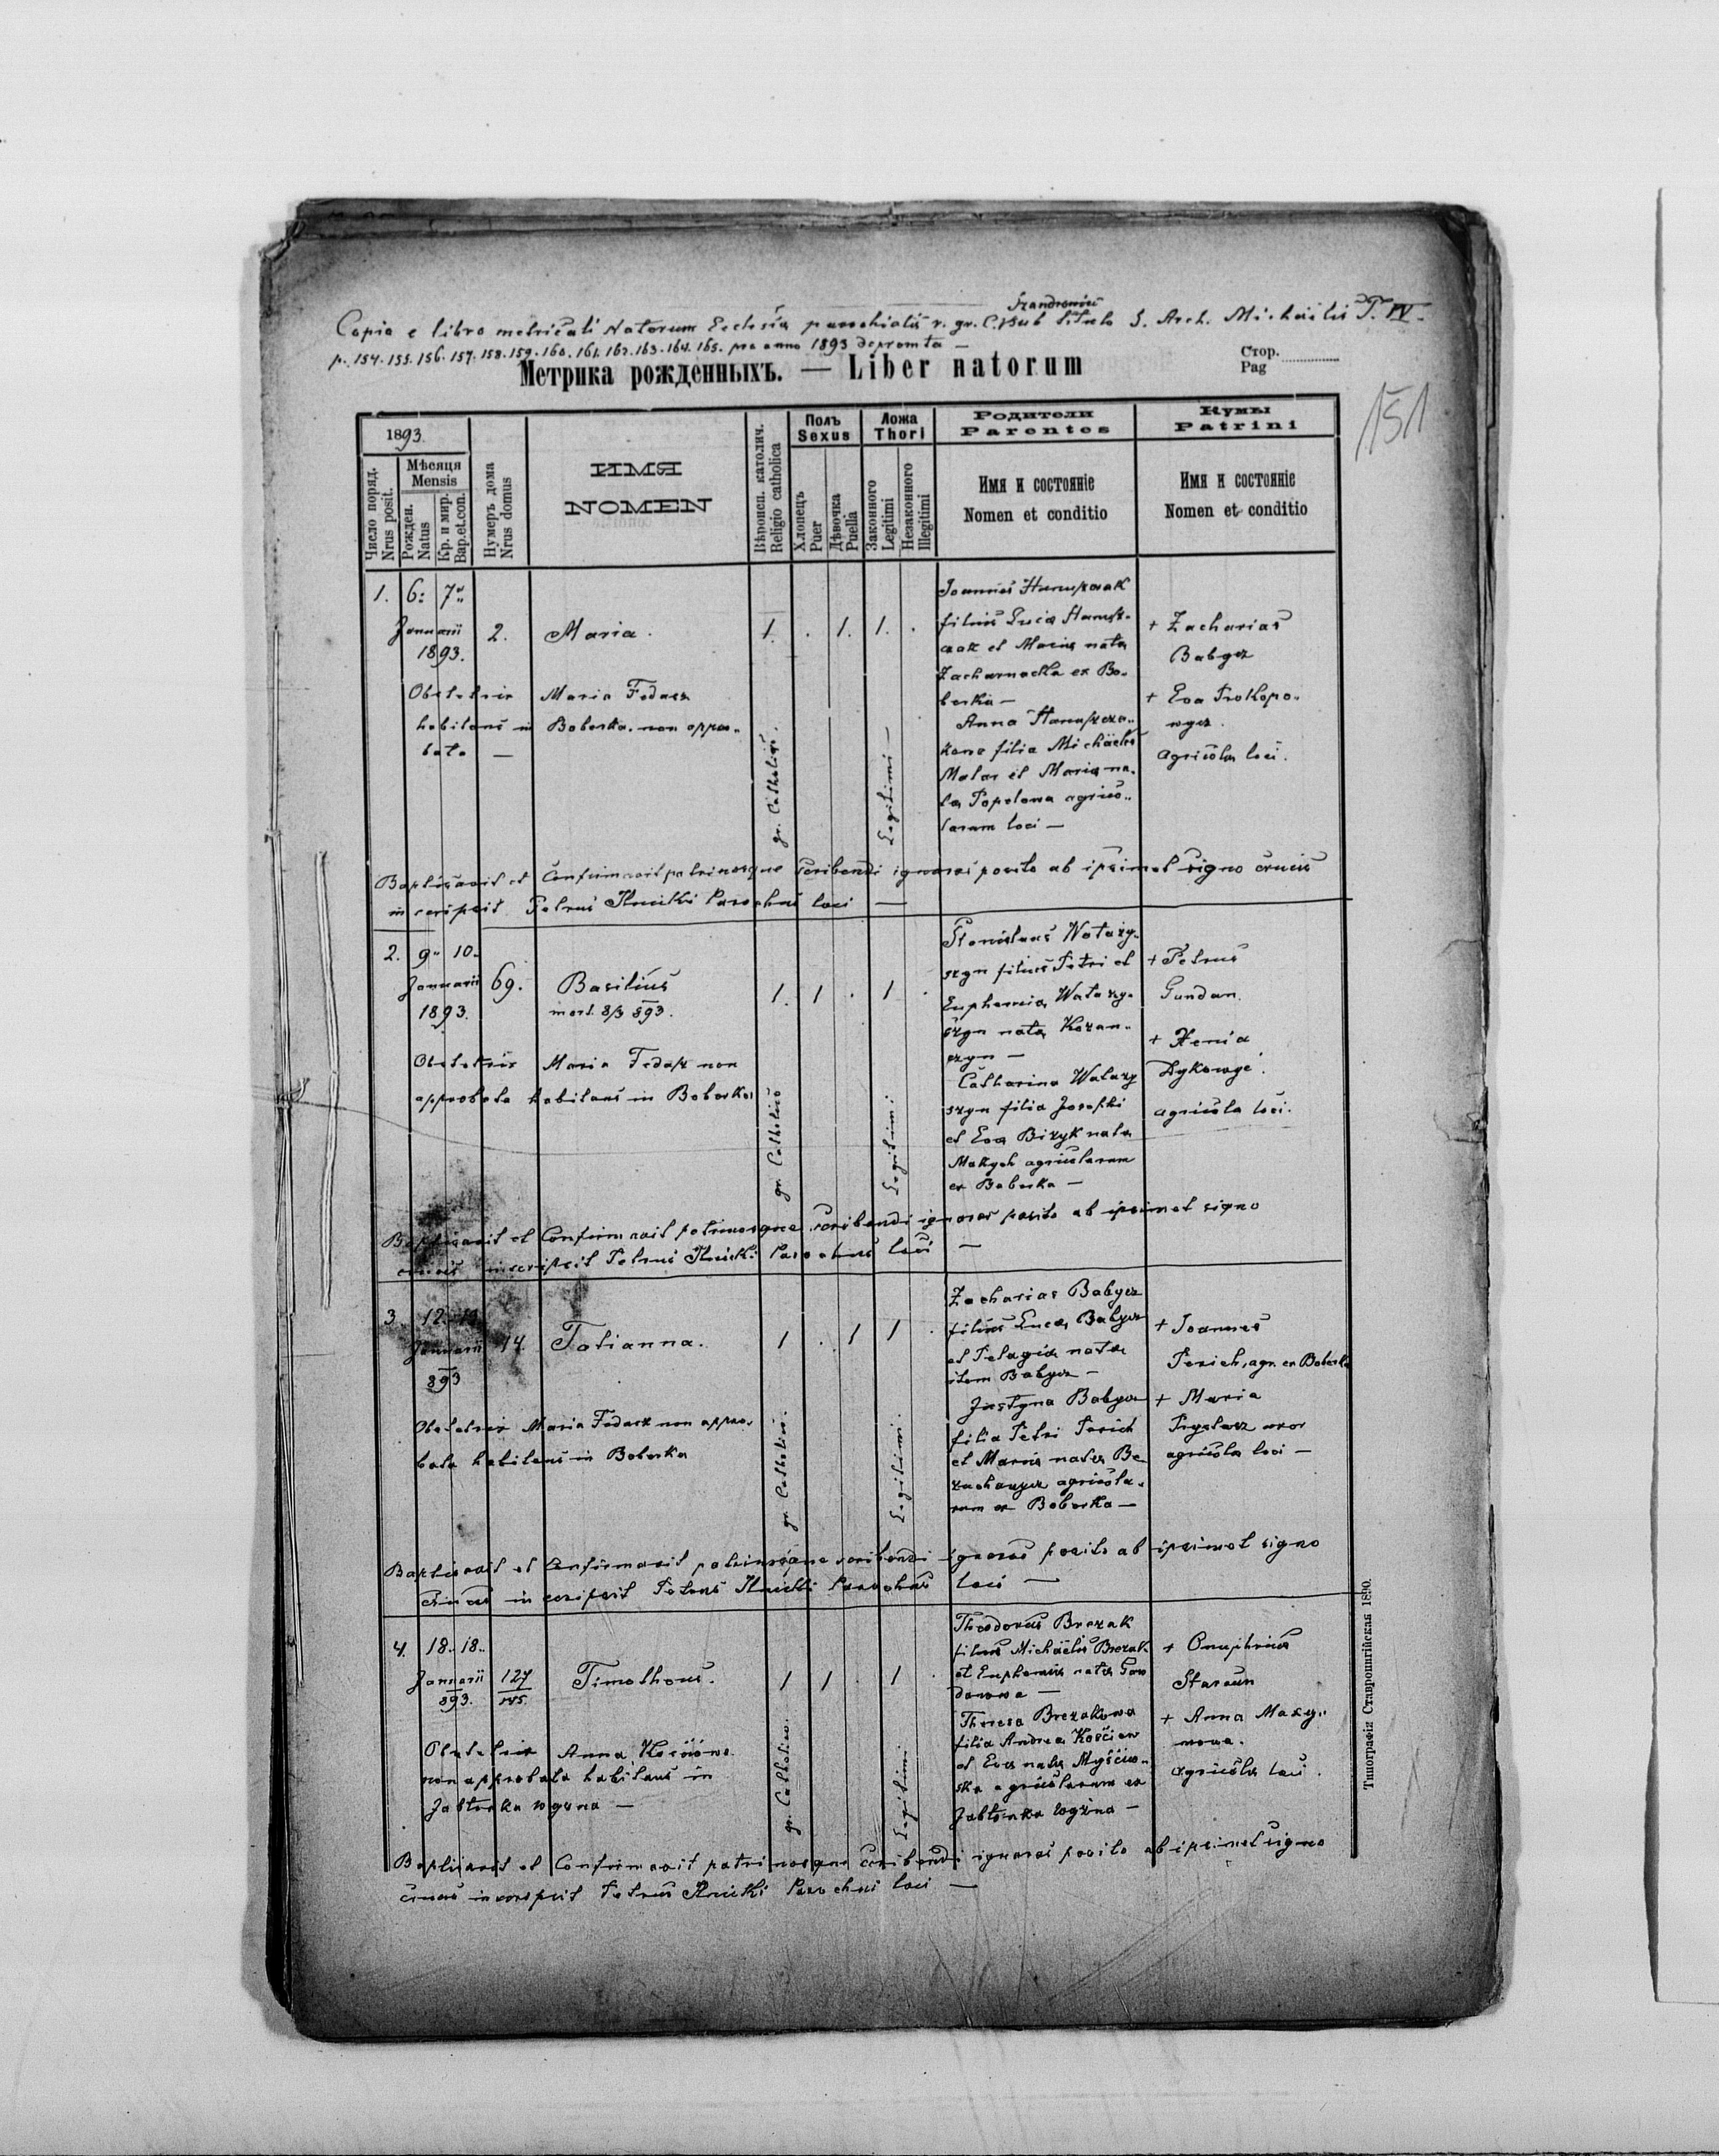 Szandrowiec
Copia e libro metricali Natorum Ecclesiæ parochialis r. gr. C. sub titulo S. Arch. Michaelis T. IV.
p. 154. 155. 156. 157. 158. 159. 160. 161. 162. 163. 164. 165. pro anno 1893 deprompta —
Метрика рожденныхъ. — Liber natorum
Стор.
Pag
151
1893.
Число поряд.
Nrus posit.
Мѣсяця
Mensis
Рожден.
Natus
Кр. и мир.
Bap. et. con.
Нумеръ дома
Nrus domus
ИМЯ
NOMEN
Вѣроисп. католич.
Religio catholica
Полъ
Sexus
Хлопецъ
Puer
Дѣвочка
Puella
Ложа
Thori
Законного
Legitimi
Незаконного
Illegitimi
Родители
Parentes
Имя и состоянiе
Nomen et conditio
Кумы
Patrini
Имя и состоянiе
Nomen et conditio
1. 6: 7
Januarii
1893.
2.
Maria.
1. . 1. 1. .
Obstetrix Maria Fedacz
habitans in Boberka. non appro-
bata —
gr. Catholici.
Legitimi —
Joannes
filius Lucæ
et Mariæ nata
ex Bo-
berka —
Anna
filia Michaelis
Malar et Mariæ na-
ta Popelowa agrico-
larum loci —
+ Zacharias
Babycz
+ Eva Prokopo-
wycz.
agricolæ loci.
Baptisavit et Confirmavit patrinosque scribendi ignaros posito ab ipsimet signo crucis
inscripsit Petrus Ilnicki Parochus loci —
2. 9 10
Januarii
1893.
69.
Basilius
mort. 8/3 893.
1. 1 . 1 .
Obstetrix Maria Fedacz non
approbata habitans in Boberka
gr. Catholici
Legitimi
Stanislaus
filius Petri et
Euphemiæ
nata
Catharina
filia Josephi
et Eva Bizyk nata
agricolarum
ex Boberka —
+ Petrus
Gundan.
+ Xenia
agricolæ loci.
Baptisavit et Confirmavit patrinosque scribendi ignaros posito ab ipsimet signo
crucis inscripsit Petrus Ilnicki Parochus loci —
3.
Januarii
893
14.
Tatianna.
1 . 1 1 .
Obstetrix Maria Fedacz non appro-
bata habitans in Boberka
gr. Catholici.
Legitimi.
Zacharias Babycz
filius Lucæ Babycz
et Pelagia nata
item Babycz —
Justyna Babycz
filia Petri Perich
et Maria nata
agricola-
rum ex Boberka —
+ Joannes
Perich, agr. ex Boberka
+ Maria
uxor
agricolæ loci —
Baptisavit et Confirmavit patrinosque scribendi ignaros posito ab ipsimet signo
crucis inscripsit Petrus Ilnicki Parochus loci —
4. 18. 18.
Januarii
893.
127
Timotheus.
1 1 . 1 .
Obstetrix Anna
non approbata habitans in
Jabłonka wyzna —
gr. Catholici.
Legitimi
Theodorus Brezak
filius Michaelis Brezak
et Euphemia nata Gon
danowa —
Theresa Brezakowa
filia Andrea Kościow
et Eva nata Myścio-
ska agricolarum ex
Jabłonka wyzna —
+ Onuphrius
Starsun
+ Anna Maxy-
mowa.
agricolæ loci.
Baptisavit et Confirmavit patrinosque scribendi ignaros posito ab ipsimet signo
crucis inscripsit Petrus Ilnicki Parochus loci —
Типографія Ставропигійская 1890.